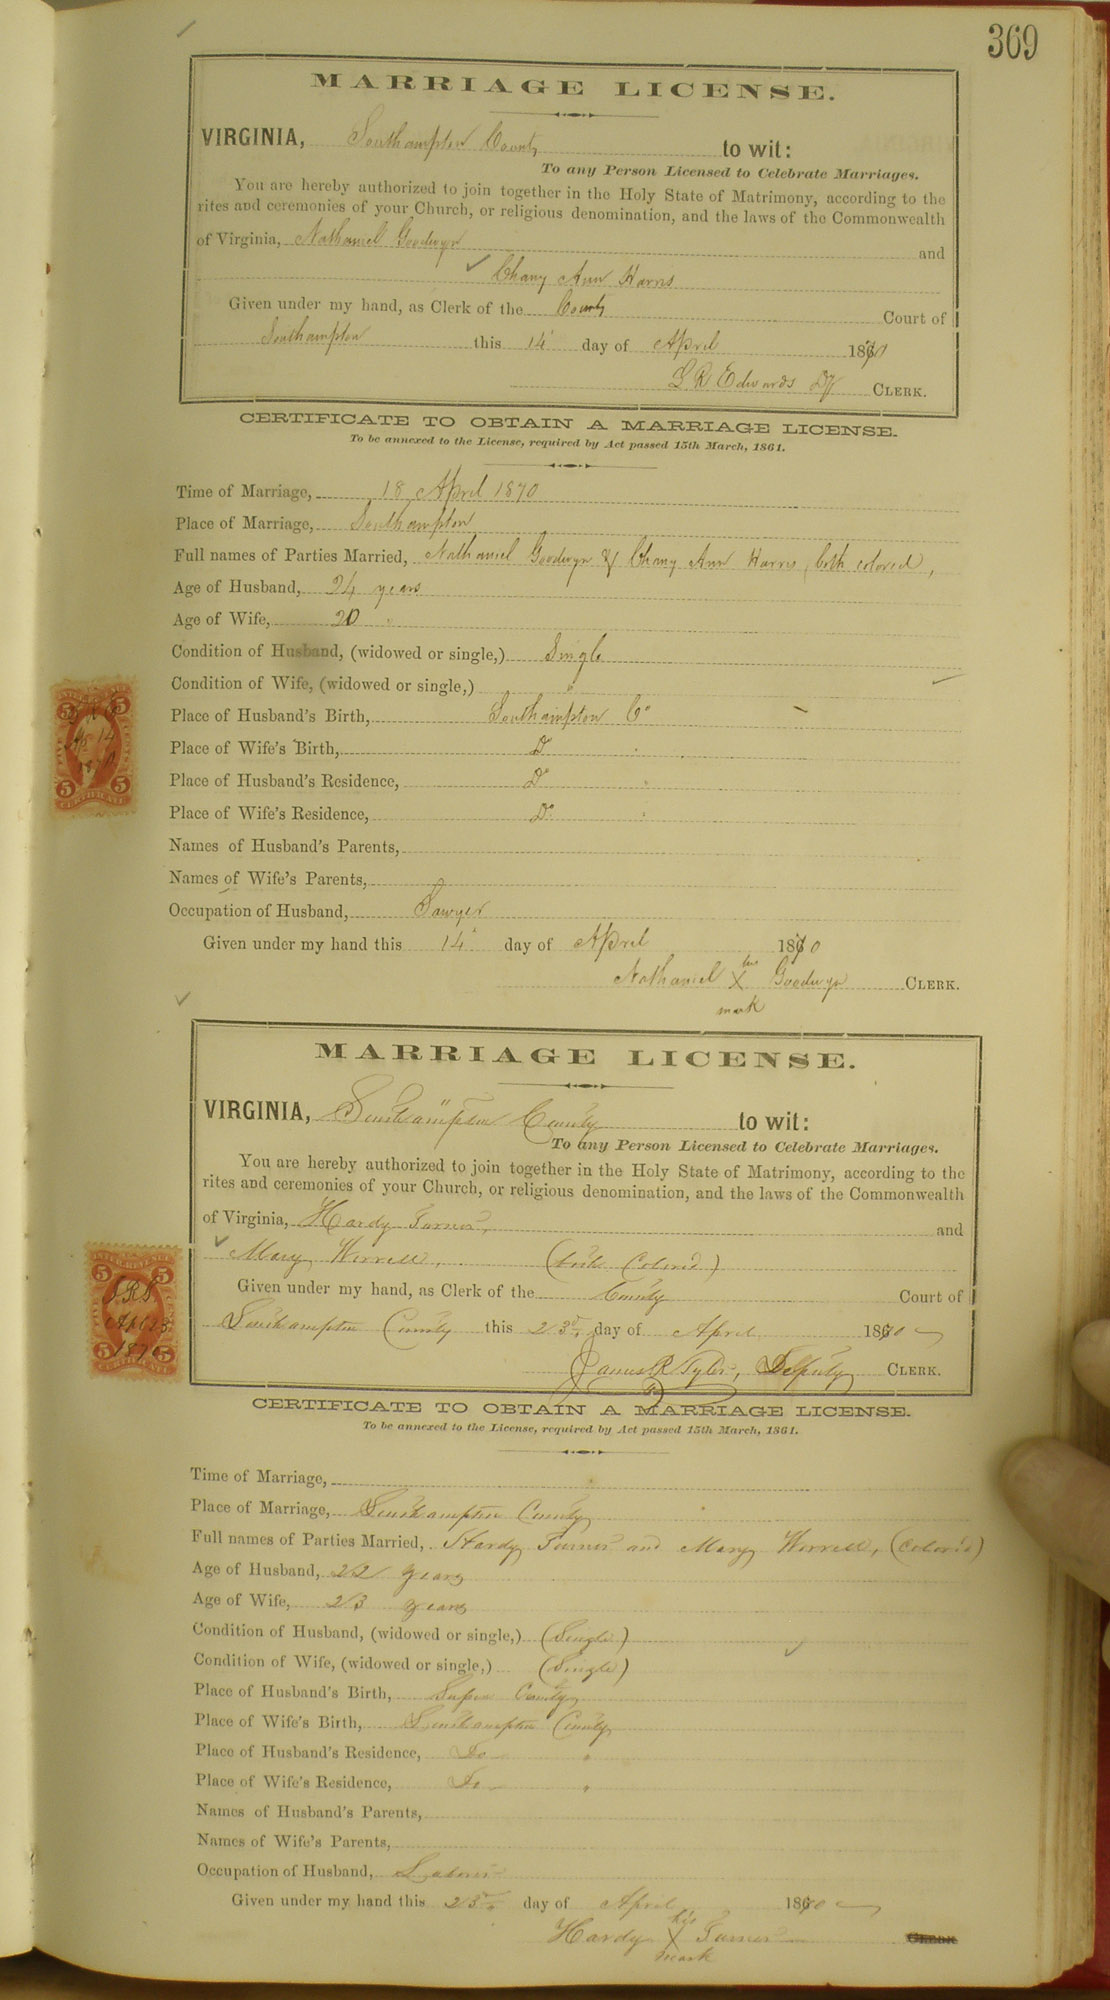 369
MARRIAGE LICENSE.
VIRGINIA, Southampton County to wit:
To any Person Licensed to Celebrate Marriages.
You are hereby authorized to join together in the Holy State of Matrimony, according to the
rites and ceremonies of your Church, or religious denomination, and the laws of the Commonwealth
of Virginia, Nathaniel Goodwyn and
Chany Ann Harris
Given under my hand, as Clerk of the County Court of
Southampton this 14 day of April 1870
L R Edwards Dy CLERK.
CERTIFICATE TO OBTAIN A MARRIAGE LICENSE.
To be annexed to the License, required by Act passed 15th March, 1861.
Time of Marriage, 18 April 1870
Place of Marriage, Southampton
Full names of Parties Married, Nathaniel Goodwyn & Chany Ann Harris, both colored,
Age of Husband, 24 years
Age of Wife, 20 "
Condition of Husband, (widowed or single,) Single
Condition of Wife, (widowed or single,) "
Place of Husband's Birth, Southampton Co
Place of Wife's Birth, Do
Place of Husband's Residence, Do
Place of Wife's Residence, Do
Names of Husband's Parents,
Names of Wife's Parents,
Occupation of Husband, Sawyer
Given under my hand this 14 day of April 1870
his
Nathaniel X Goodwyn CLERK.
mark
MARRIAGE LICENSE.
VIRGINIA, Southampton County to wit:
To any Person Licensed to Celebrate Marriages.
You are hereby authorized to join together in the Holy State of Matrimony, according to the
rites and ceremonies of your Church, or religious denomination, and the laws of the Commonwealth
of Virginia, Hardy Turner, and
Mary Worrell, (both Colored)
Given under my hand, as Clerk of the County Court of
Southampton County this 23d day of April 1870
James R Tyler, Deputy CLERK.
CERTIFICATE TO OBTAIN A MARRIAGE LICENSE.
To be annexed to the License, required by Act passed 15th March, 1861.
Time of Marriage,
Place of Marriage, Southampton County
Full names of Parties Married, Hardy Turner and Mary Worrell, (Colored)
Age of Husband, 22 years
Age of Wife, 23 years
Condition of Husband, (widowed or single,) (Single)
Condition of Wife, (widowed or single,) (Single)
Place of Husband's Birth, County
Place of Wife's Birth, Southampton County
Place of Husband's Residence, Do "
Place of Wife's Residence, Do "
Names of Husband's Parents,
Names of Wife's Parents,
Occupation of Husband, Laborer
Given under my hand this 23d day of April 1870
his
Hardy X Turner CLERK
mark
5 5
FIVE CENTS
Ap 14
1870
5 5
CERTIFICATE
INTER. REVENUE
5 5
J.R.T.
Apl 23
1870
5 5